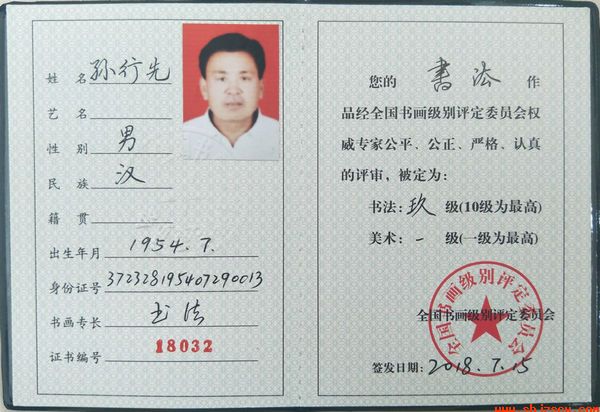 姓 名 孙行先
艺 名
性 别 男
民 族 汉
籍 贯
出生年月 1954.7.
身份证号 372328195407290013
书画专长 书法
证书编号 18032
您的 書法 作
品经全国书画级别评定委员会权
威专家公平、公正、严格、认真
的评审，被定为：
书法：玖 级(10级为最高)
美术：一 级(一级为最高)
全国书画级别评定委员会
全国书画级别评定委员会
签发日期：2018.7.15